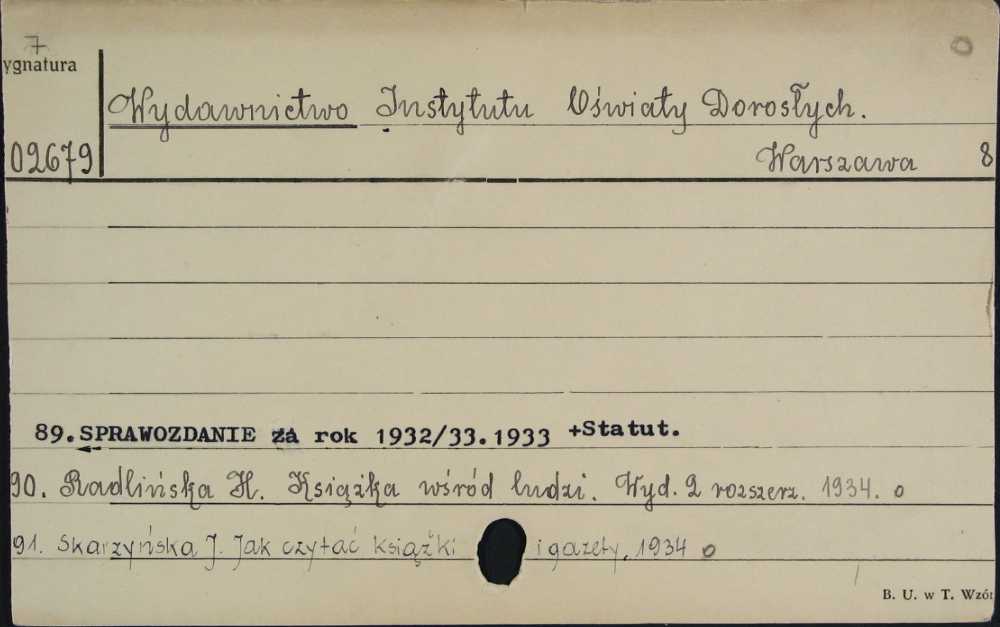 7
ygnatura
Wydawnictwo Instytutu Oświaty Dorosłych.
02679
Warszawa 8
89. SPRAWOZDANIE za rok 1932/33. 1933 +Statut.
90. Radlińska H. Książka wśród ludzi. Wyd. 2 rozszerz. 1934. o
91. Skarzyńska J. Jak czytać książki i gazety, 1934 o
B. U. w T. Wzór